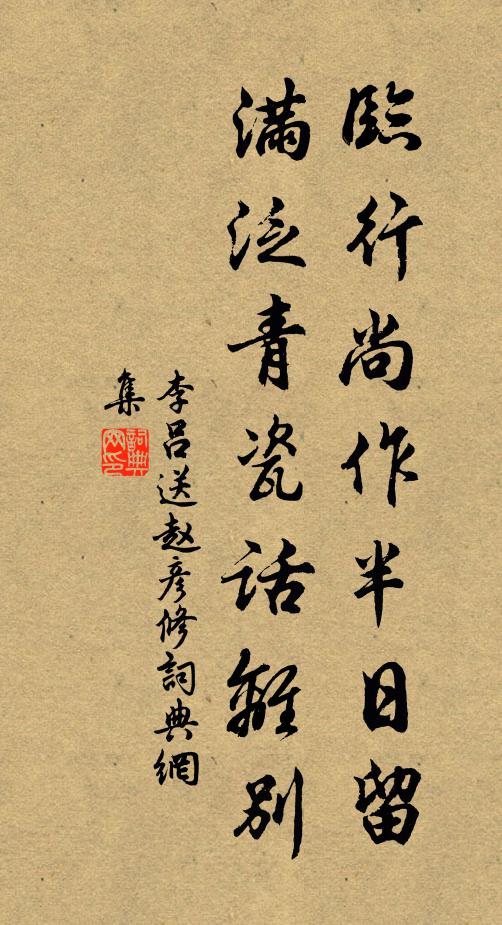 臨行尚作半日留
滿泛青瓷話離別
李呂送赵彦修詞典網
集
詞典
网印